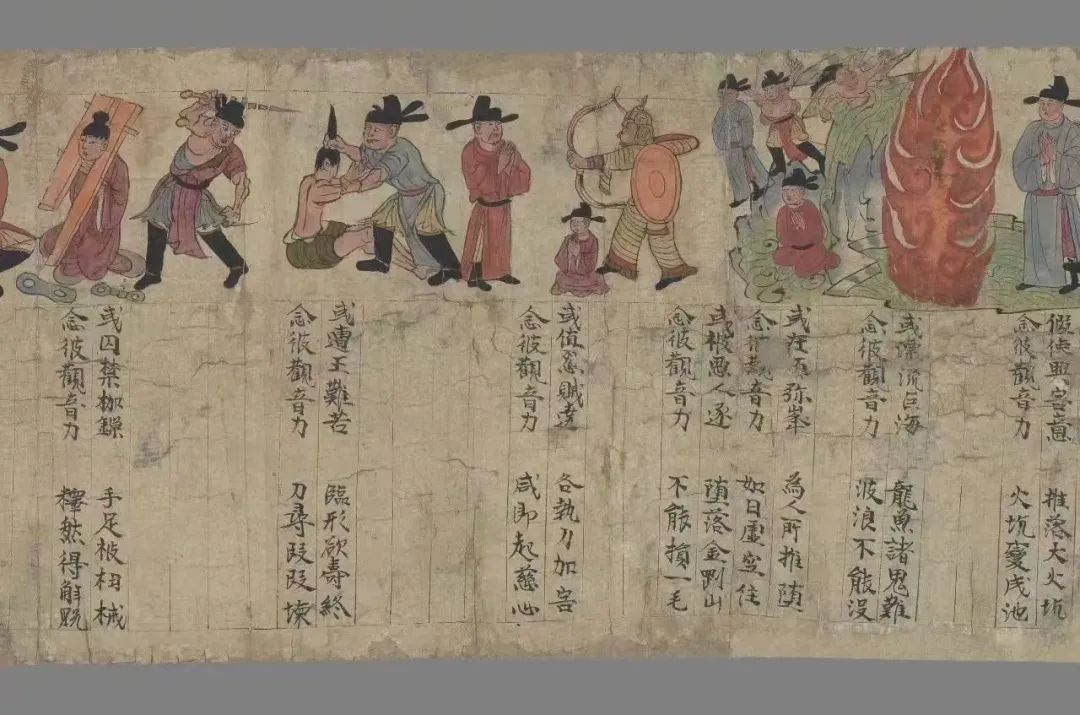 假使興害意 推落大火坑
念彼觀音力 火坑變成池
或漂流巨海 龍魚諸鬼難
念彼觀音力 波浪不能沒
或在須弥峯 為人所推堕
念彼觀音力 如日虛空住
或被惡人逐 堕落金剛山
念彼觀音力 不能損一毛
或值怨賊遶 各執刀加害
念彼觀音力 咸即起慈心
或遭王難苦 臨形欲壽終
念彼觀音力 刀尋段段壞
或囚禁枷鏁 手足被杻械
念彼觀音力 釋然得解脫